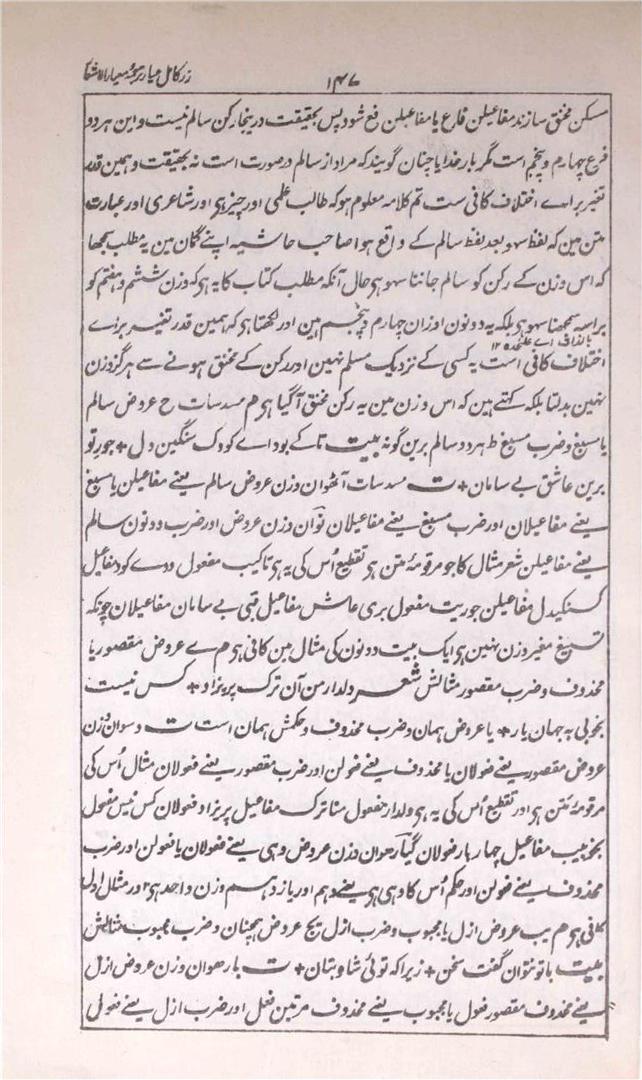 زر کامل عیار ترجمہ معیار الاشعار
۱۴۷
مسکن مخنق سازند مفاعیلن فارع یا مفاعیلن فع شود پس بحقیقت درینجا رکن سالم نیست و این ہر دو
فرع چہارم و پنجم است مگر بار خدایا چنان گویند کہ مراد از سالم در صورت است نہ بحقیقت و ہمین قدر
تغیر براے اختلاف کافی ست تم کلامہ معلوم ہو کہ طالب علمی اور چیز ہی اور شاعری اور عبارت
متن مین کہ لفظ سہو بعد لفظ سالم کے واقع ہوا صاحب حاشیہ اپنے گمان مین یہ مطلب سمجھا
کہ اس وزن کے رکن کو سالم جاننا سہو ہی حال آنکہ مطلب کتاب کا یہ ہی کہ وزن ششم و ہفتم کو
براسہ سمجھنا سہو ہی بلکہ یہ دونون اوزان چہارم و پنجم ہین اور لکھتا ہی کہ ہمین قدر تغیر براے
اے علیحدہ ۱۲
اختلاف کافی است یہ کسی کے نزدیک مسلم نہین اور رکن کے مخنق ہونے سے ہرگز وزن
نہین بدلتا بلکہ کہتے ہین کہ اس وزن مین یہ رکن مخنق آگیا ہی م مسدسات ح عروض سالم
یا مسبغ و ضرب مسبغ ط ہر دو سالم برین گونہ بیت تاکے بود اے کودک سنگین دل + جور تو
برین عاشق بے سامان + ت مسدسات آٹھوان وزن عروض سالم یعنے مفاعیلن یا مسبغ
یعنے مفاعیلان اور ضرب مسبغ یعنے مفاعیلان نوان وزن عروض اور ضرب دونون سالم
یعنے مفاعیلن شعر مثال کا جو مرقومۂ متن ہی تقطیع اُس کی یہ ہی تاکیب مفعول ودے کود مفاعیل
کسنگیدل مفاعیلن جوریت مفعول بری عاش مفاعیل قبی بے سامان مفاعیلان چونکہ
تسبیغ مغیر وزن نہین ہی ایک بیت دونون کی مثال مین کافی ہی م ے عروض مقصور یا
محذوف و ضرب مقصور مثالش شعر دلدار من آن ترک پریزاد + کس نیست
بخوبی بہ جہان یار + یا عروض ہمان و ضرب محذوف و حکمش ہمان است ت دسوان وزن
عروض مقصور یعنے فعولان یا محذوف یعنے فعولن اور ضرب مقصور یعنے فعولان مثال اُس کی
مرقومۂ متن ہی اور تقطیع اُس کی یہ ہی دلدار مفعول منا ترک مفاعیل پریزاد فعولان کس نیس مفعول
بخوبیب مفاعیل جہا ریار فعولان گیارھوان وزن عروض وہی یعنے فعولان یا فعولن اور ضرب
محذوف یعنے فعولن اور حکم اُس کا وہی ہی یعنے دہم اور یازدہم وزن واحد ہی اور مثال اول
کافی ہی م یب عروض ازل یا مجبوب و ضرب ازل یج عروض ہمچنان و ضرب مجبوب مثالش
بیت با تو نتوان گفت سخن + زیرا کہ توئی شاہ بتان + ت بارھوان وزن عروض ازل
یعنے محذوف مقصور فعول یا مجبوب یعنے محذوف مرتین فعل اور ضرب ازل یعنے فعول